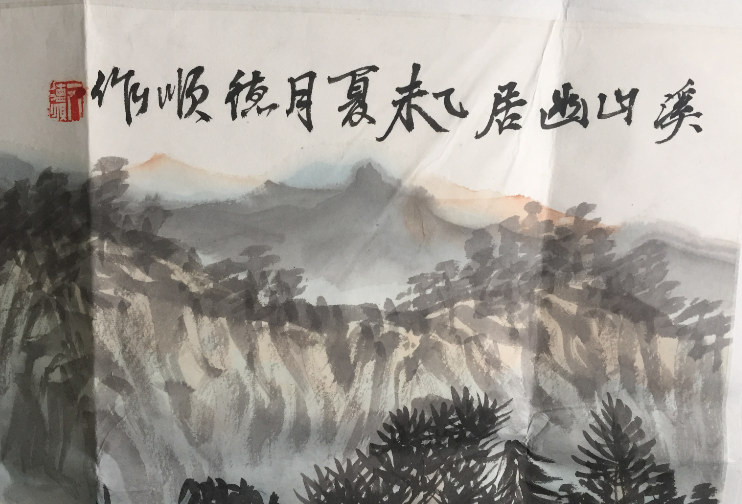 溪山幽居乙未夏月德顺作